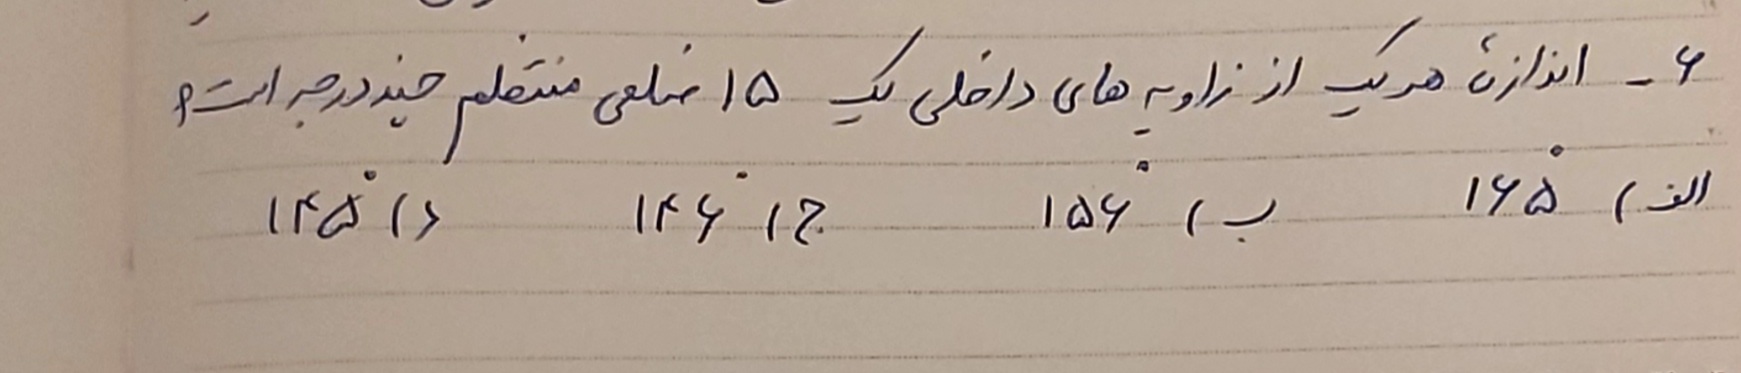 ۶ - اندازهٔ هر یک از زاویه های داخلی یک ۱۵ ضلعی منتظم چند درجه است؟
الف) ۱۶۵° ب) ۱۵۶° ج) ۱۴۶° د) ۱۴۵°